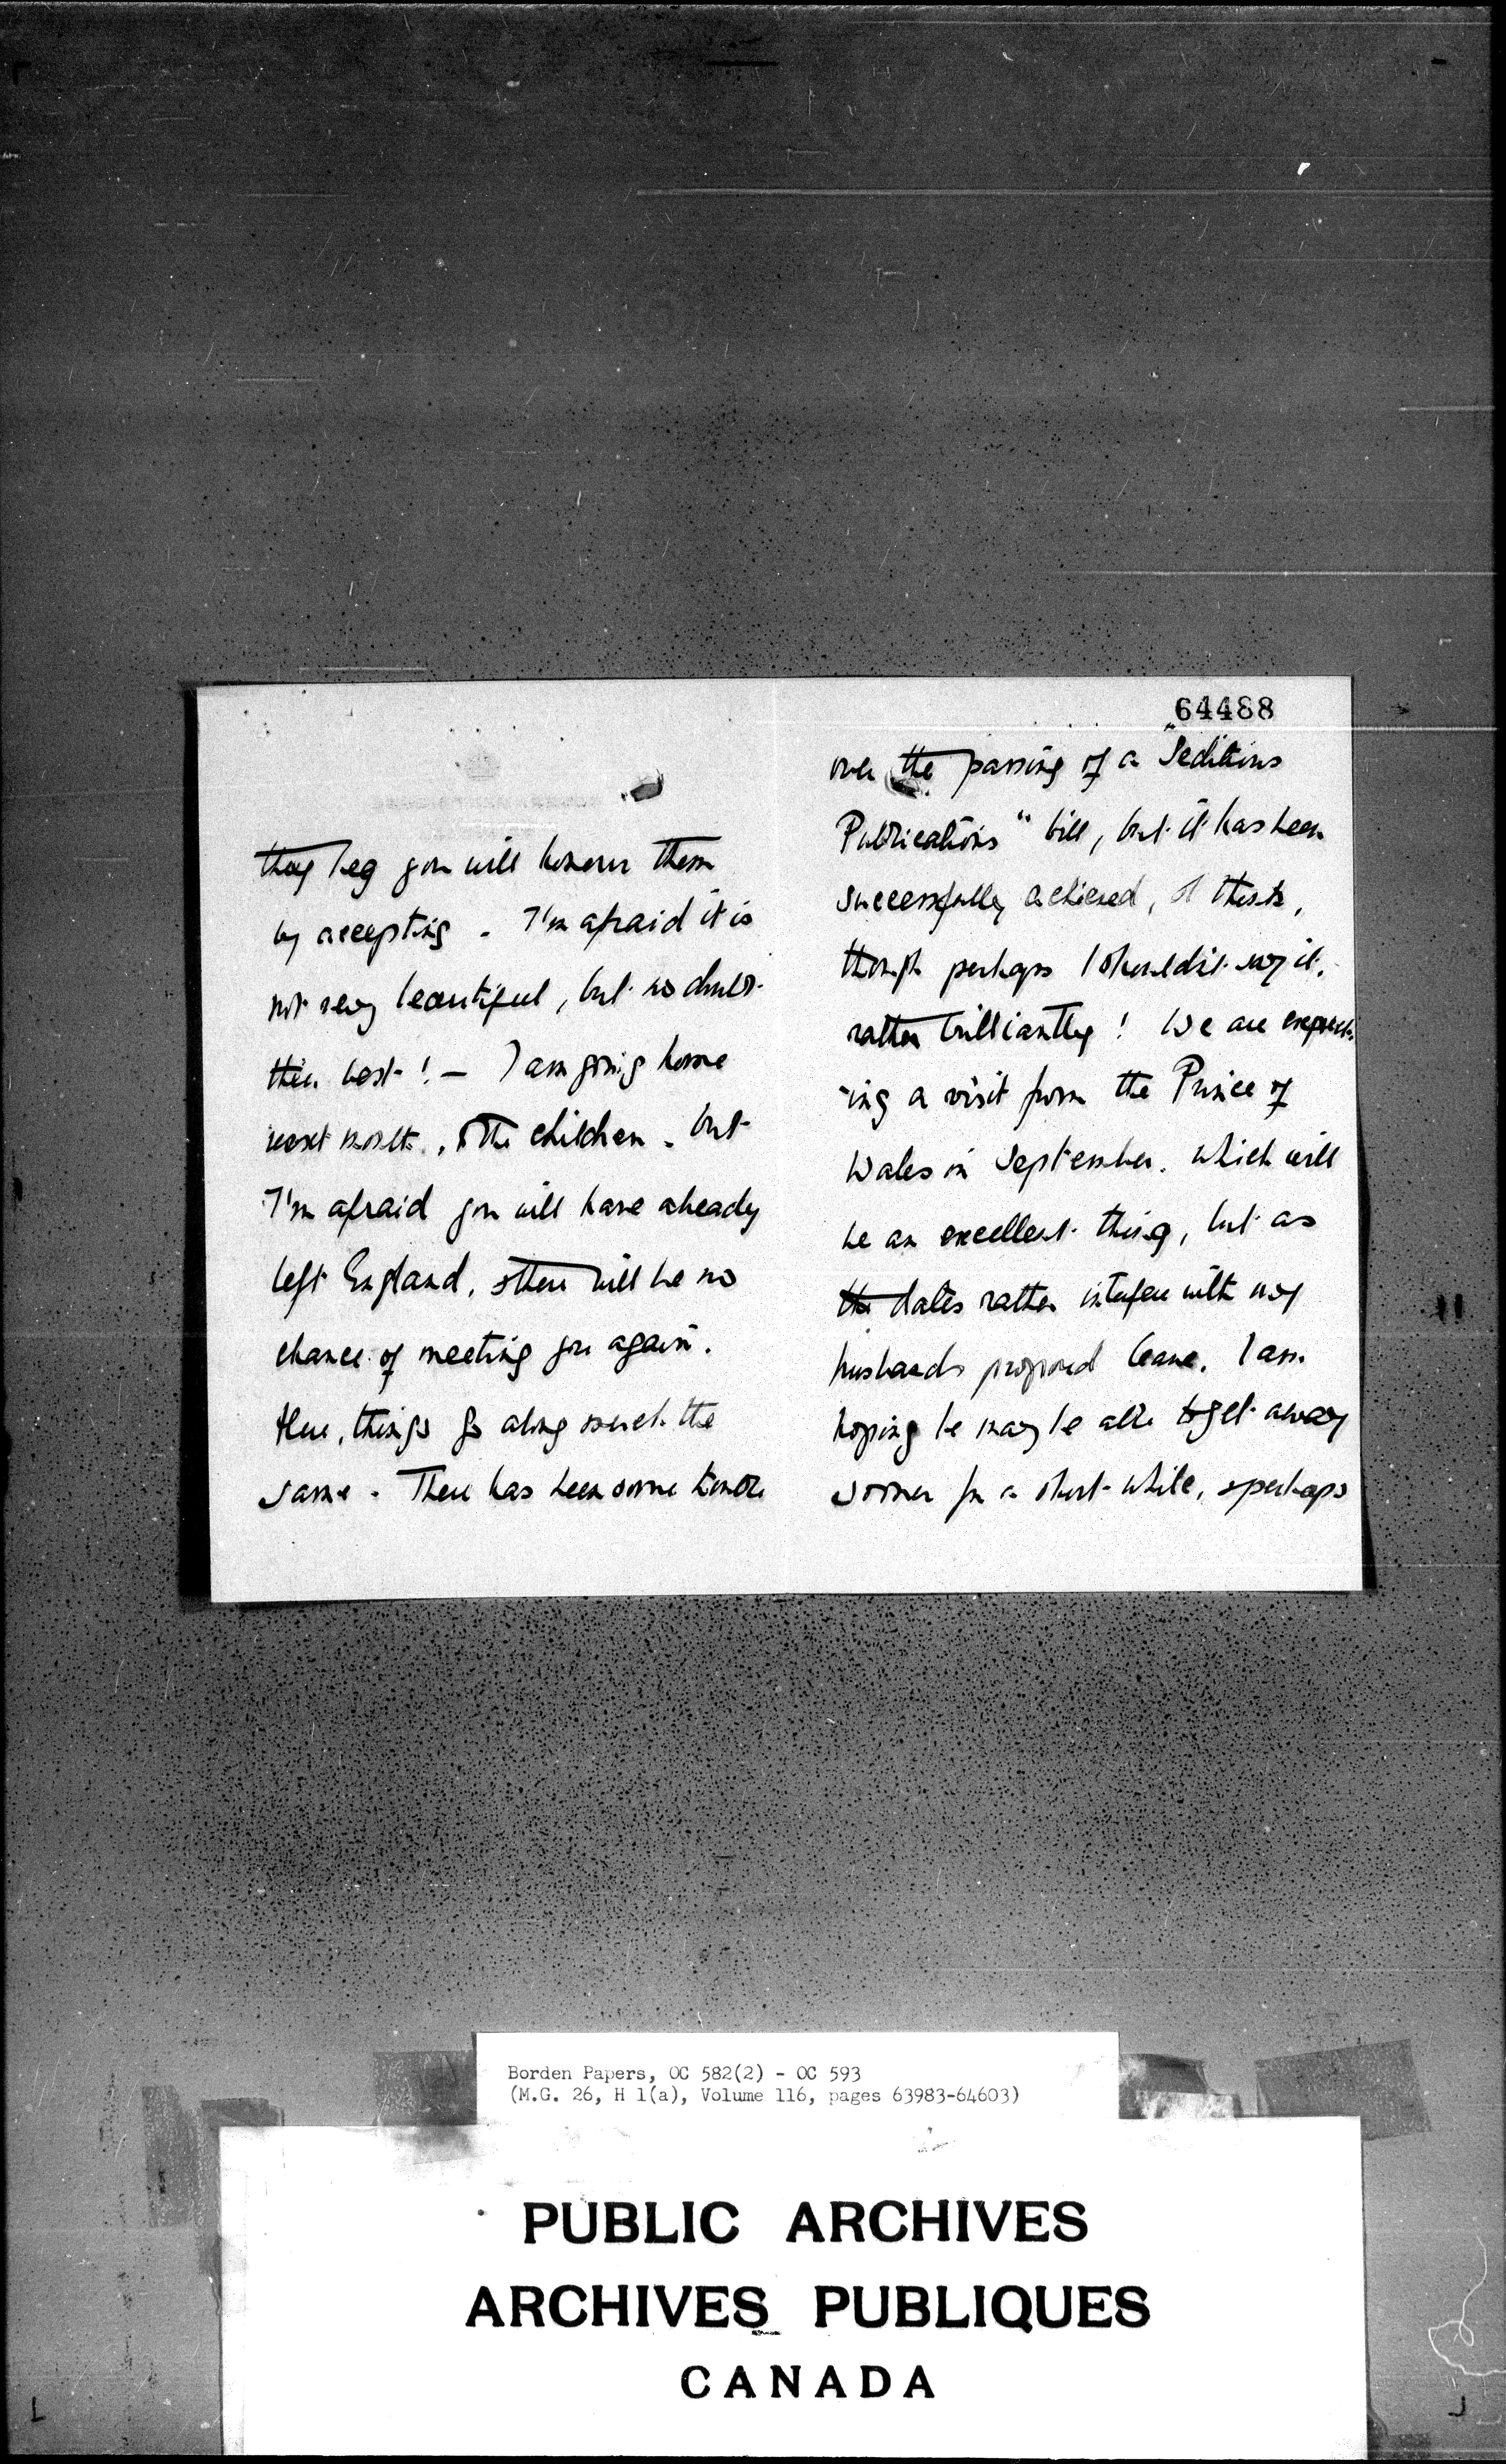 they beg you will honour them
by accepting. I'm afraid it is
not very beautiful, but no doubt
their best! — I am going home
next month, & the children. but
I'm afraid you will have already
left England, & there will be no
chance of meeting you again.
Here, things go along much the
same. There has been some trouble
64488
over the passing of a "Seditious
Publications" bill, but it has been
successfully achieved, & I think,
though perhaps I shouldn't say it,
rather brilliantly! We are expect-
-ing a visit from the Prince of
Wales in September. which will
be an excellent thing, but as
the dates rather interfere with my
husbands proposed leave, I am
hoping he may be able to get away
sooner for a short while, & perhaps
Borden Papers, OC 582(2) - OC 593
(M.G. 26, H 1(a), Volume 116, pages 63983-64603)
PUBLIC ARCHIVES
ARCHIVES PUBLIQUES
CANADA